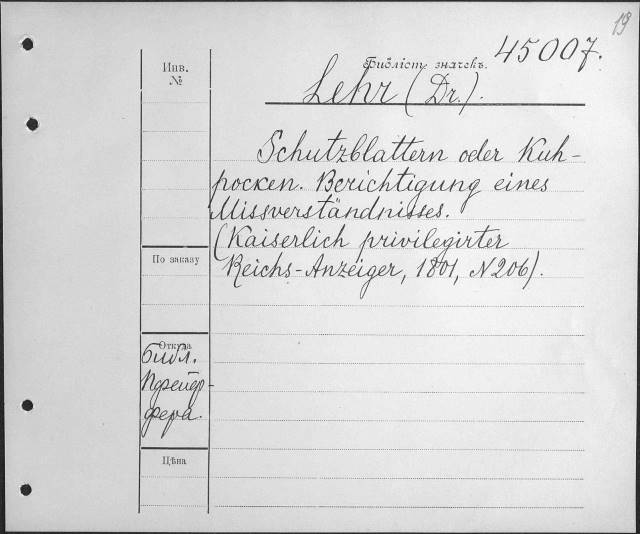 19
Инв.
№
Библіот. значекъ.
45007.
Lehr (Dr.).
Schutzblattern oder Kuh-
pocken. Berichtigung eines
Missverständnisses.
(Kaiserlich privilegirter
Reichs-Anzeiger, 1801, N 206).
По заказу
Откуда
библ.
Пфейф-
фера.
Цѣна